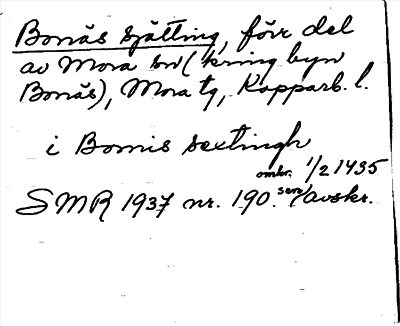 Bonäs sjätting, förr del
av Mora sn (kring byn
Bonäs), Mora tg, Kopparb. l.
i Bomis sextingh
omkr. 1/2 1435
SMR 1937 nr. 190. sen avskr.